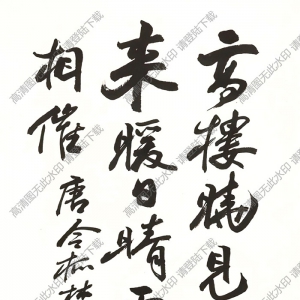 高樓曉見
来暖日晴
相催 唐令狐
高清图无此水印 请登陆下载